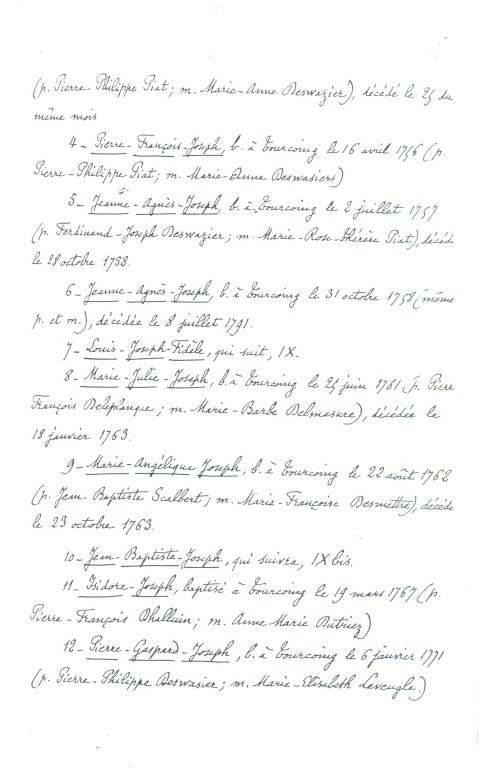 (p. Pierre-Philippe Piat; m. Marie-Anne Deswazier), décédé le 25 du
même mois
4- Pierre-François-Joseph, b. à Tourcoing le 16 avril 1756 (p.
Pierre-Philippe Piat; m. Marie-Anne Deswasiers)
5- Jeanne-Agnès-Joseph, b. à Tourcoing le 2 juillet 1757
(p. Ferdinand-Joseph Deswazier; m. Marie-Rose-Thérère Piat), décéd
le 28 octobre 1758.
6- Jeanne-Agnès-Joseph, b. à Tourcoing le 31 octobre 1758 (même
p. et m.), décédée le 8 juillet 1791.
7- Louis-Joseph-Fidèle, qui suit, IX.
8- Marie-Julie-Joseph, b. à Tourcoing le 24 juin 1761 (p. Pierre
François Deleplanque; m. Marie-Barbe Delmasure), décédée le
18 janvier 1763.
9- Marie-Angélique Joseph, b. à Tourcoing le 22 août 1762
(p. Jean-Baptiste Scalbert; m. Marie-Françoise Desmettre), décéde
le 23 octobre 1763.
10- Jean-Baptiste-Joseph, qui suivra, IX bis.
11- Isidore-Joseph, baptisé à Tourcoing le 19 mars 1767 (p.
Pierre-François Dhalluin; m. Anne Marie Dutriez)
12- Pierre-Gaspard-Joseph, b. à Tourcoing le 6 janvier 1771
(p. Pierre-Philippe Deswasier; m. Marie-Elisabeth Leveugle.)